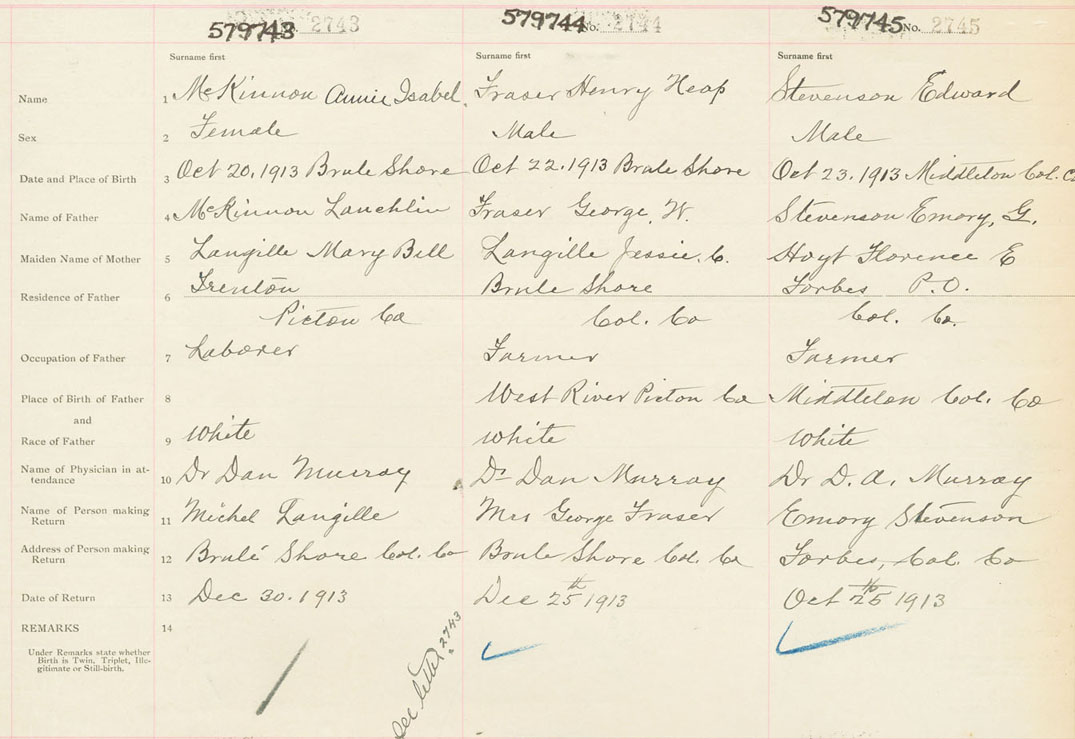 579743 No. 2743
579744 No. 2744
579745 No. 2745
Surname first Surname first Surname first
Name 1 McKinnon Annie Isabel Fraser Henry Heap Stevenson Edward
Sex 2 Female Male Male
Date and Place of Birth 3 Oct 20, 1913 Brule Shore Oct 22, 1913 Brule Shore Oct 23, 1913 Middleton Col. Co
Name of Father 4 McKinnon Lauchlin Fraser George, W. Stevenson Emory, G.
Maiden Name of Mother 5 Langille Mary Bell Langille Jessie, C. Hoyt Florence E
Residence of Father 6 Trenton Brule Shore Forbes P.O.
Pictou Co Col. Co Col. Co.
Occupation of Father 7 Laborer Farmer Farmer
Place of Birth of Father 8 West River Pictou Co Middleton Col. Co
and
Race of Father 9 White White White
Name of Physician in at-
tendance 10 Dr Dan Murray Dr Dan Murray Dr D. A. Murray
Name of Person making
Return 11 Michel Langille Mrs George Fraser Emory Stevenson
Address of Person making
Return 12 Brule Shore Col. Co Brule Shore Col. Co Forbes, Col. Co
Date of Return 13 Dec 30. 1913 Dec 25th 1913 Oct 25th 1913
REMARKS 14
Under Remarks state whether
Birth is Twin, Triplet, Ille-
gitimate or Still-birth.
See letter 2743